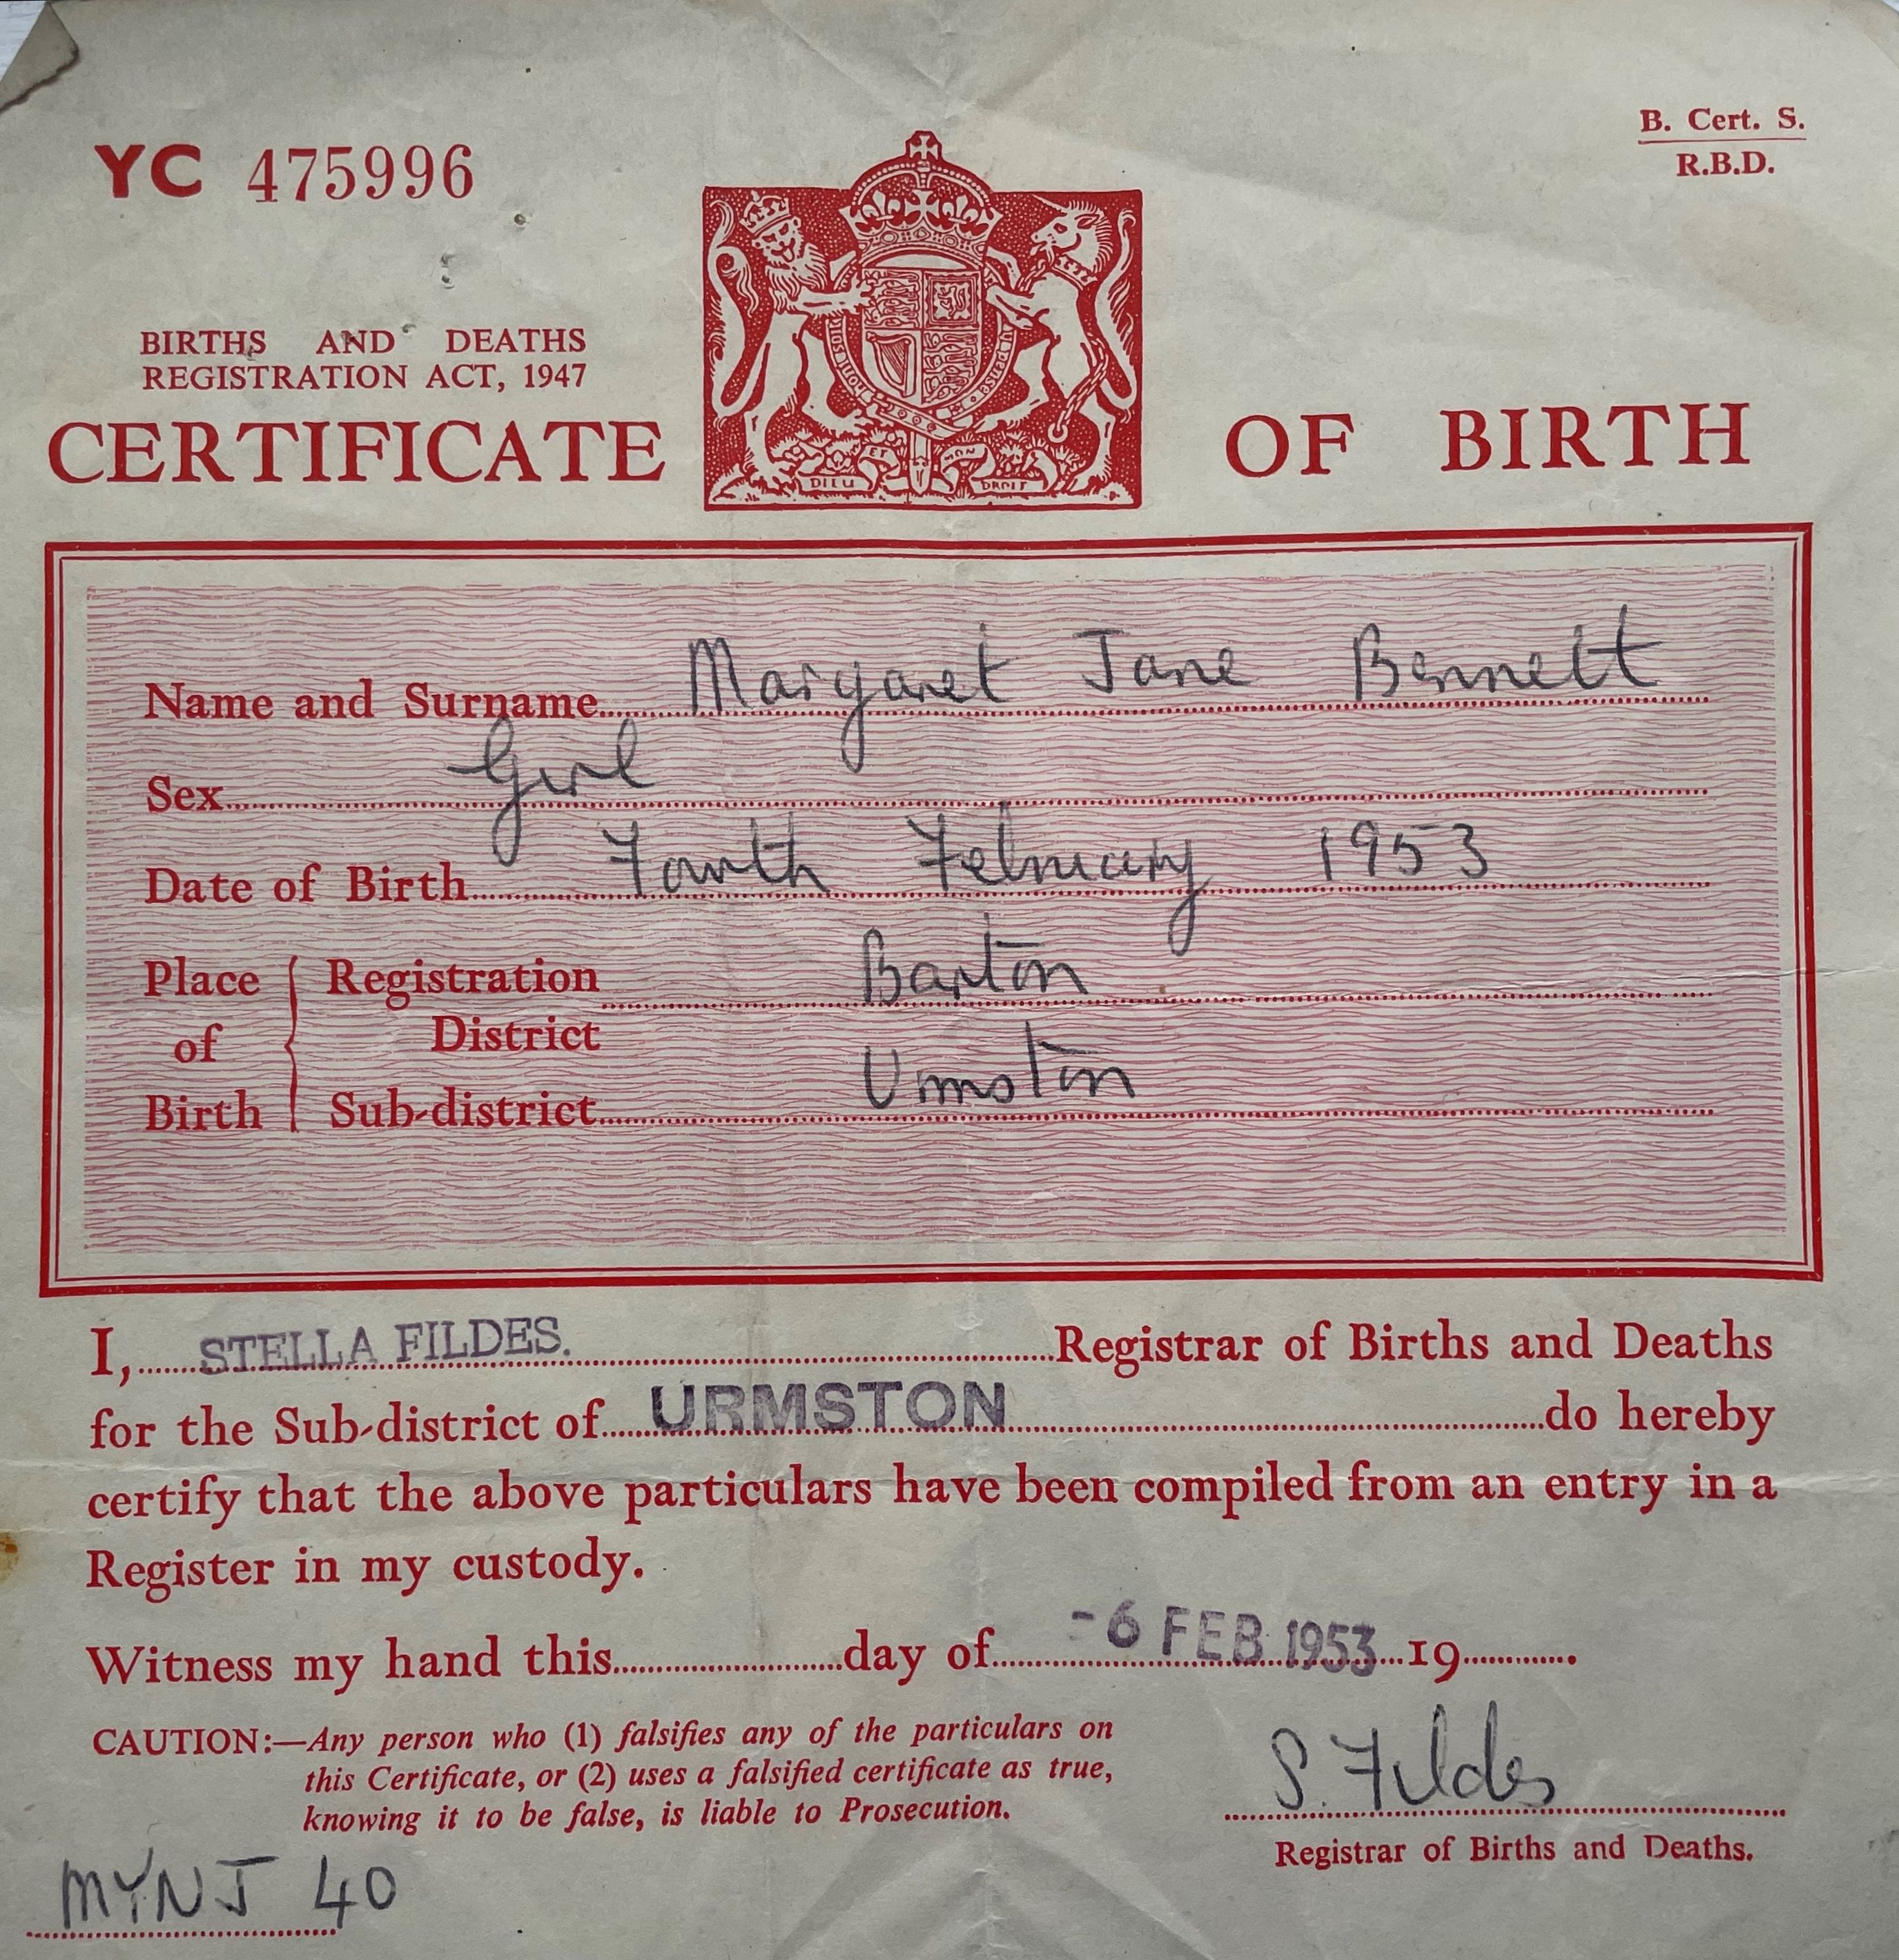 B. Cert. S.
R.B.D.
YC 475996
BIRTHS AND DEATHS
REGISTRATION ACT, 1947
CERTIFICATE OF BIRTH
DIEU ET MON DROIT
Name and Surname Margaret Jane Bennett
Sex Girl
Date of Birth Fourth February 1953
Place of Birth
Registration District Barton
Sub-district Urmston
I, STELLA FILDES. Registrar of Births and Deaths
for the Sub-district of URMSTON do hereby
certify that the above particulars have been compiled from an entry in a
Register in my custody.
Witness my hand this day of -6 FEB 1953 19
CAUTION:—Any person who (1) falsifies any of the particulars on
this Certificate, or (2) uses a falsified certificate as true,
knowing it to be false, is liable to Prosecution.
S. Fildes
Registrar of Births and Deaths.
MYNJ 40